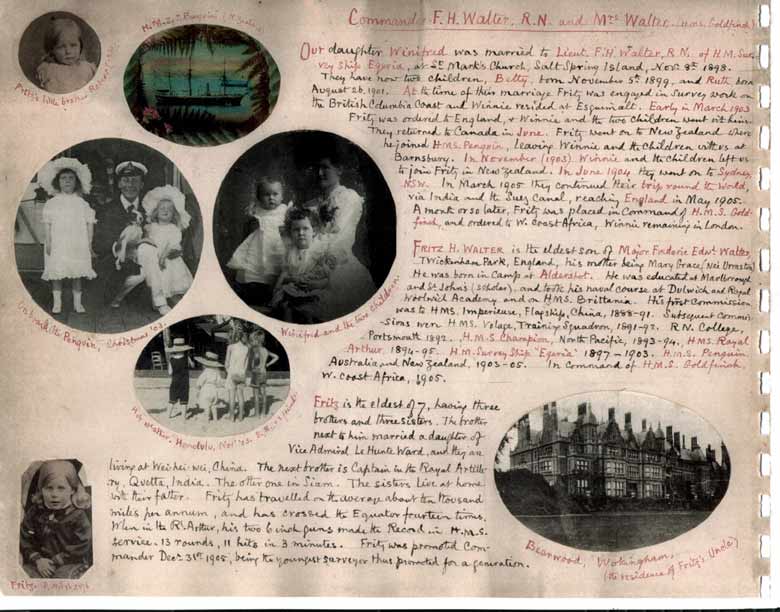 Commander F.H. Walter, R.N. and Mrs Walter. H.M.S. Goldfinch
Our daughter Winifred was married to Lieut. F.H. Walter, R.N. of H.M. Sur-
vey Ship Egeria, at St Mark's Church, Salt Spring Island, Nov. 8th 1898.
They have now two children, Betty, born November 5th 1899, and Ruth born
August 26, 1901. At the time of their marriage Fritz was engaged in Survey work on
the British Columbia Coast and Winnie resided at Esquimalt. Early in March 1903
Fritz was ordered to England, & Winnie and the two Children went with him.
They returned to Canada in June. Fritz went on to New Zealand where
he joined HMS. Penguin, leaving Winnie and the Children with us at
Barnsbury. In November (1903) Winnie and the children left us
to join Fritz in New Zealand. In June 1904 they went on to Sydney,
NSW. In March 1905 they continued their trip round the World,
via India and the Suez Canal, reaching England in May 1905.
A month or so later, Fritz was placed in Command of H.M.S. Gold-
finch, and ordered to W. Coast Africa, Winnie remaining in London.
Fritz H. Walter is the eldest son of Major Frederic Edwd Walter,
Twickenham Park, England, his mother being Mary Grace (Neé Urmston)
He was born in Camp at Aldershot. He was educated at Marlborough
and St John's (scholar), and took his naval course at Dulwich and Royal
Woolwich Academy and on HMS. Brittania. His first Commission
was to HMS. Imperieuse, Flagship, China, 1888-91. Subsequent Commis-
sions were HMS. Volage, Training Squadron, 1891-92. R.N. College,
Portsmouth 1892. H.M.S. Champion, North Pacific, 1893-94. HMS. Royal
Arthur, 1894-95. H.M. Survey Ship "Egeria" 1897-1903. H.M.S. Penguin
Australia and New Zealand, 1903-05. In Command of H.M.S. Goldfinch,
W. Coast Africa, 1905.
Fritz is the eldest of 7, having three
brothers and three sisters. The brother
next to him married a daughter of
Vice Admiral Le Hunte Ward, and they are
living at Wei-hei-wei, China. The next brother is Captain in the Royal Artille-
ry, Quetta, India. The other one in Siam. The sisters live at home
with their father. Fritz has travelled on the average about ten thousand
miles per annum, and has crossed the Equator fourteen times.
When in the Rl Arthur, his two 6 inch guns made the Record in H.M.S.
service. 13 rounds, 11 hits in 3 minutes. Fritz was promoted Com-
mander Decr 31st 1905, being the youngest surveyor thus promoted for a generation.
Fritz's little brother
H.M. Ship Penguin (N. Zealand)
On board the Penguin - Christmas '03.
Winifred and the two Children.
Honolulu, Nov.
Fritz
Bearwood, Wokingham,
(the residence of Fritz's Uncle)